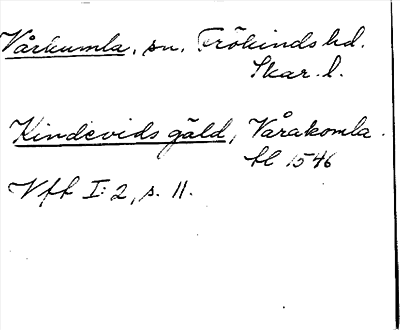 Vårkumla, sn. Frökinds hd.
Skar. l.
Kindevids gäld, Vårakomla.
bl 1546
Vfh I:2, s. 11.